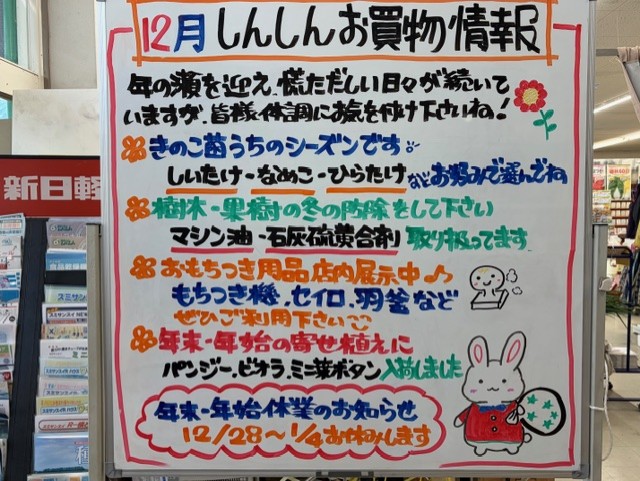 12月 しんしんお買物情報
年の瀬を迎え、慌ただしい日々が続いて
いますが、皆様体調にお気を付け下さいね!
きのこ菌うちのシーズンです
しいたけ・なめこ・ひらたけ などお好みで選んでね
樹木・果樹の冬の防除をして下さい
マシン油・石灰硫黄合剤 取り扱ってます
おもちつき用品店内展示中♪
もちつき機、セイロ、羽釜など
ぜひご利用下さい
年末・年始の寄せ植えに
パンジー、ビオラ、ミニ葉ボタン 入荷しました
年末・年始休業のお知らせ
12/28～1/4お休みします
新日軽